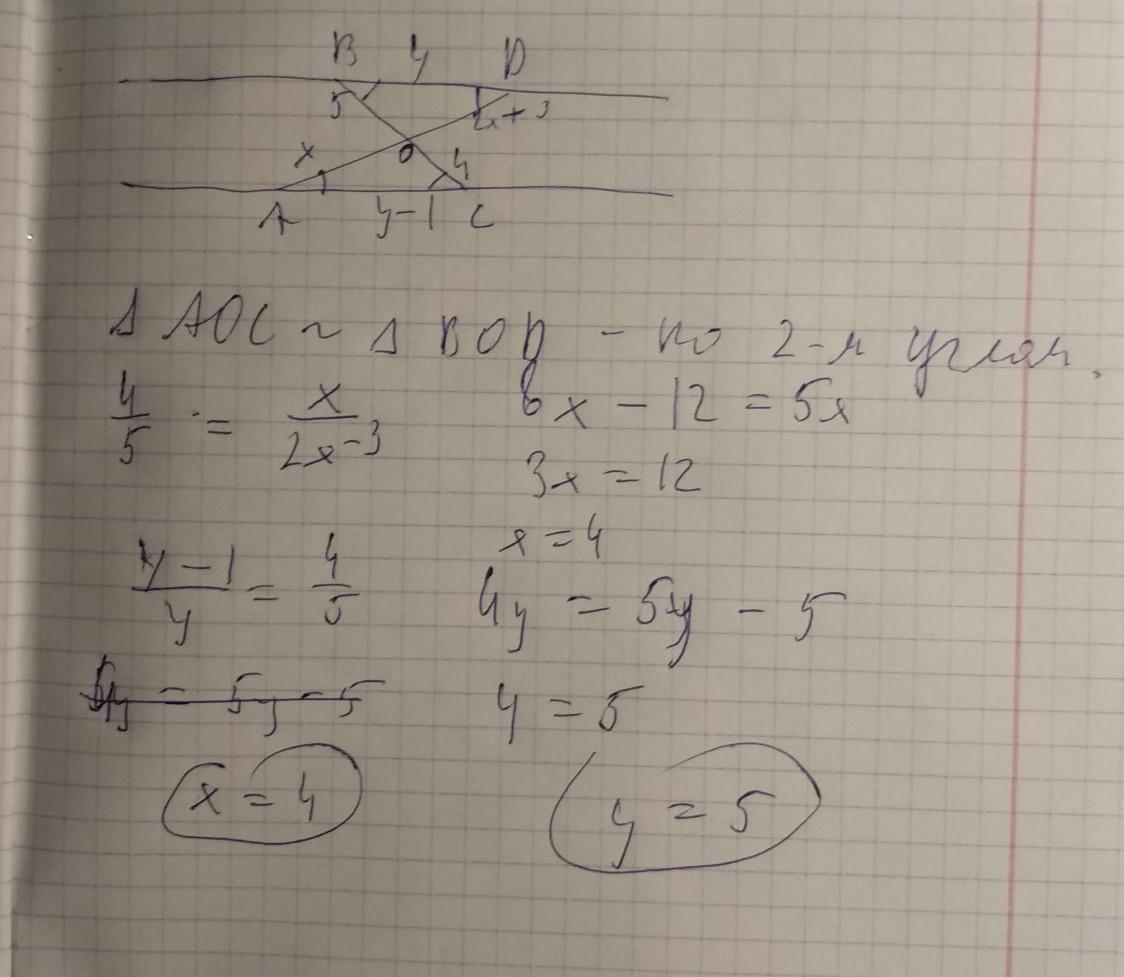 B y D
5
x O 4
A y-1 C
Δ AOC ~ Δ BOD - по 2-м углам.
4/5 = x/2x-3
8x - 12 = 5x
3x = 12
x = 4
y-1/y = 4/5
4y = 5y - 5
4y = 5y - 5
y = 5
x = 4
y = 5